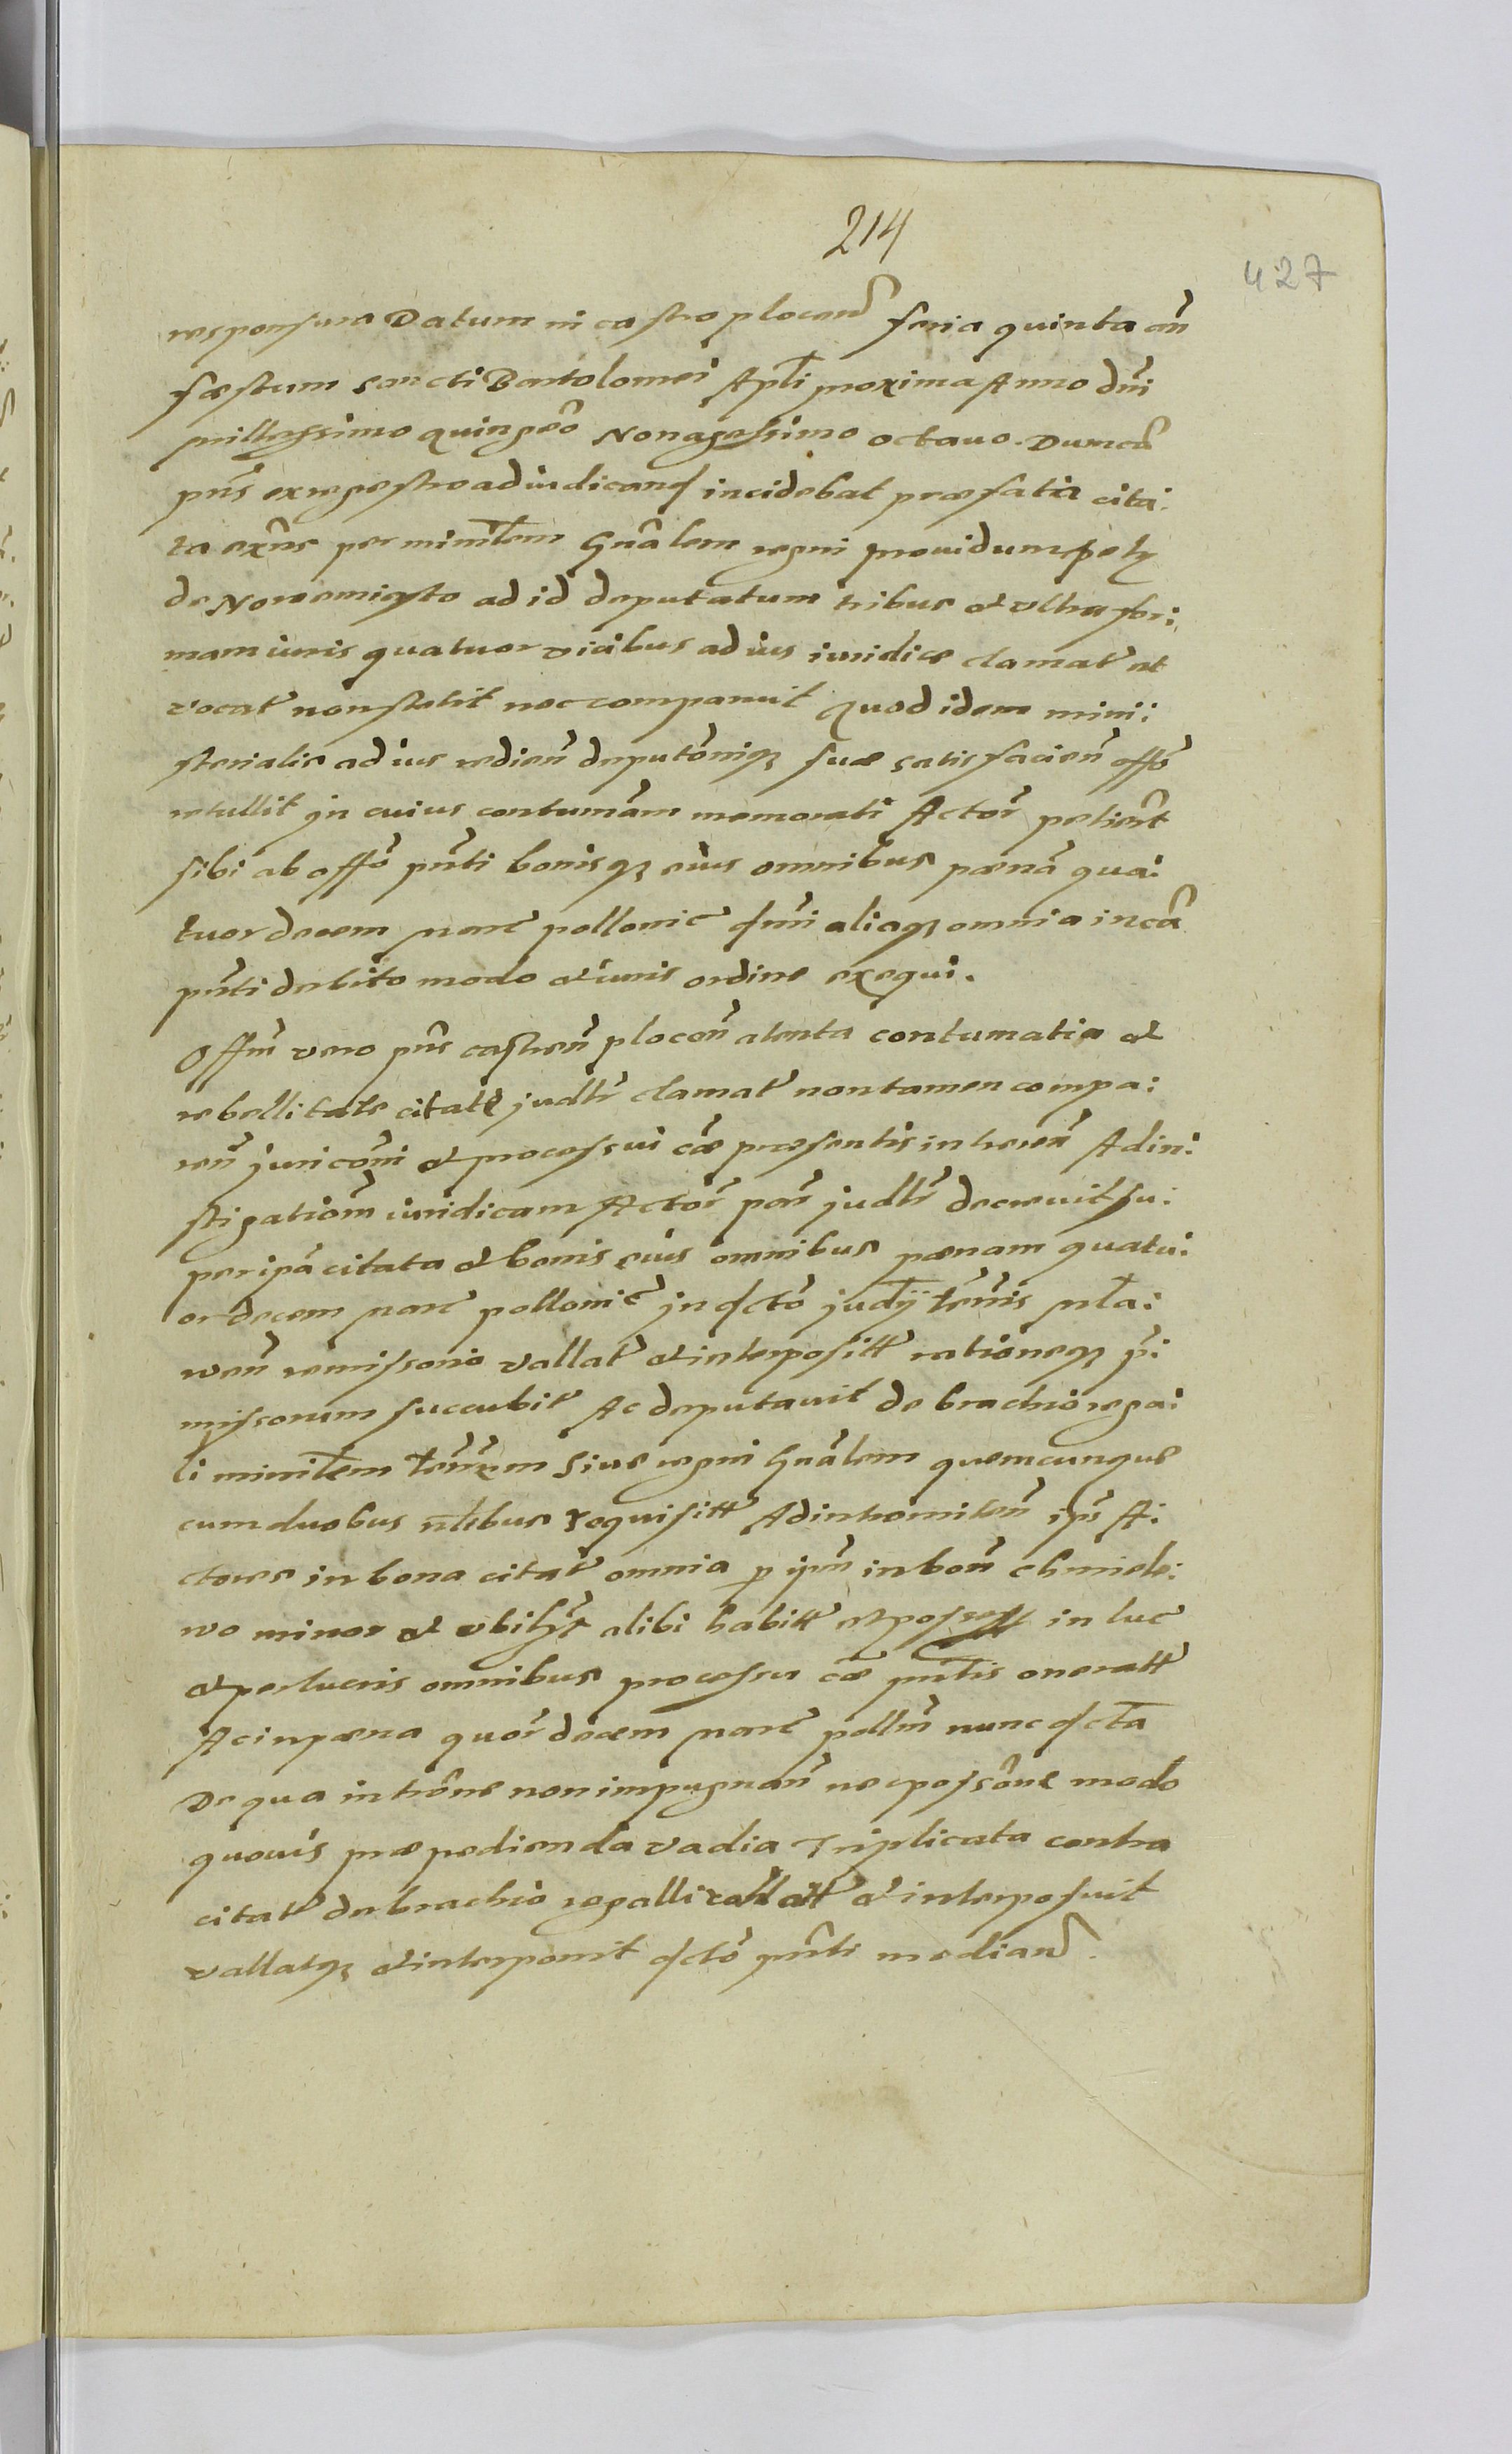 214
427
responsura Datum in castro plocen̄ feria quinta an̄
fæstum sancti Bartolomei Apl̄i proxima Anno dn̄i
millesssimo quingēo Nonagessimo octauo. Dum cā
pn̄s ex regestro ad iudicand incidebat præfata cita:
ta exn̄s per minil̄em Gnālem regni prouidum
de Nowemiasto ad id deputatum tribus et vltra for:
mam iuris quatuor vicibus ad ius iuridice clamat et
vocat non stetit nec comparuit Quod idem mini:
sterialis ad ius redien̄ deputōniq suæ satisfacien̄ offō
retullit in cuius contumām memorati Actor̄ petierūt
sibi ab offō pn̄ti bonisq eius omnibus pænā qua:
tuordecem marc pollonic dni aliaq omnia in cā
pn̄ti debito modo et iuris ordine exequi.
Offm̄ vero pn̄s castren̄ plocen̄ atenta contumatia et
rebellitate citatæ judlr̄ clamat non tamen compa:
ren̄ juricōni et processui cæ præsentis inheren̄ Ad in:
stigatiōm iuridicam Actor̄ par judlr̄ decreuit su:
per ipā citata et bonis eius omnibus pænam quatu:
ordecem marc pollonic in dctō judij terris
wen̄ remissorio vallat et interposit rationeq p̄:
missorum succubit Ac deputauit de brachio rega:
li minil̄em terrem siue regni Gnālem quemcunque
cum duobus nl̄ibus requisit Ad intromiten̄ ips A:
ctores in bona citat omnia p ipm̄ in bon̄ chmiele:
wo minor et vbilbt alibi habit et possess in luc
et perlucris omnibus processu cæ pn̄tis onerat
Ac in pæna quor decem marc pollm̄ nunc dcta
De qua intrōne non impugnan̄ nec possōne modo
quouis præpedienda vadia Triplicata contra
citat de brachio regalli vallat et interposuit
vallatq et interponit dctō pn̄ti median̄.